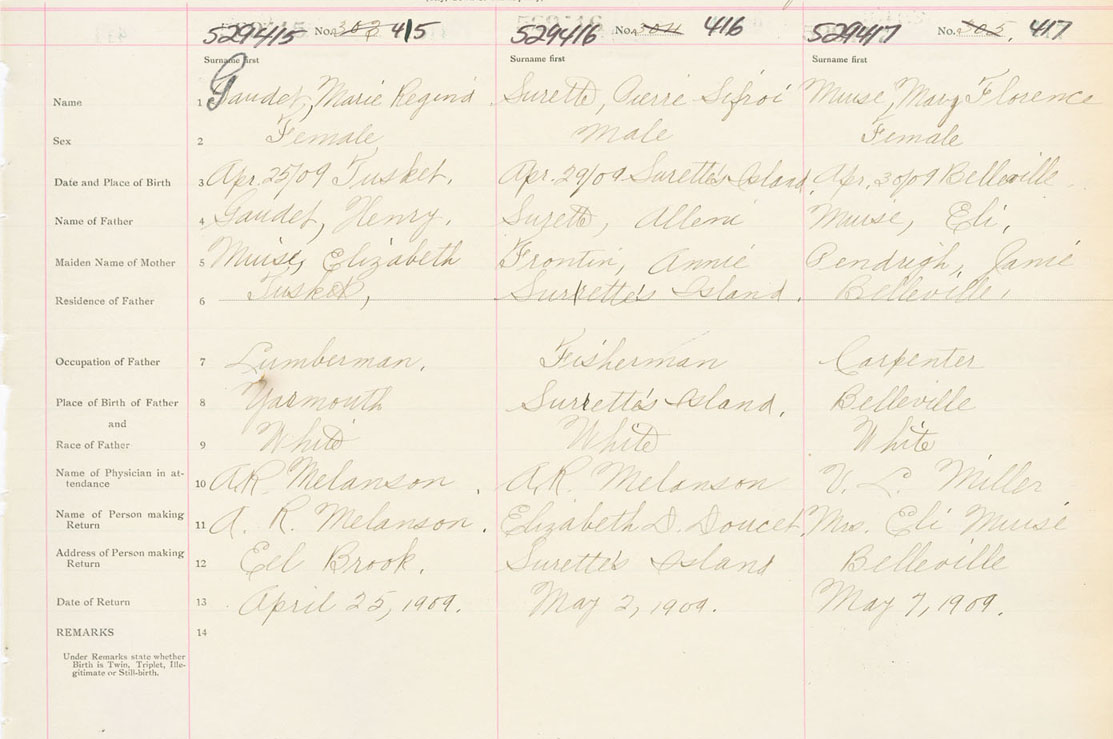 529415 No. 415 529416 No. 416 529417 No. 305. 417
Surname first Surname first Surname first
Name 1 Gaudet, Marie Regina Surette, Pierre Sifroi Muise, Mary Florence
Sex 2 Female Male Female
Date and Place of Birth 3 Apr. 25/09 Tusket. Apr. 29/09 Surette's Island Apr. 30/09 Belleville.
Name of Father 4 Gaudet, Henry. Surette, Muise, Eli,
Maiden Name of Mother 5 Muise, Elizabeth Frontin, Annie Pendrigh, Janie
Residence of Father 6 Tusket, Surrette's Island. Belleville,
Occupation of Father 7 Lumberman. Fisherman Carpenter
Place of Birth of Father 8 Yarmouth Surrette's Island. Belleville
and
Race of Father 9 White White White
Name of Physician in at-
tendance 10 A.R. Melanson. A.R. Melanson V. L. Miller
Name of Person making
Return 11 A. R. Melanson. Elizabeth D. Doucet. Mrs. Eli Muise
Address of Person making
Return 12 Eel Brook. Surette's Island Belleville
Date of Return 13 April 25, 1909. May 2, 1909. May 7, 1909.
REMARKS 14
Under Remarks state whether
Birth is Twin, Triplet, Ille-
gitimate or Still-birth.